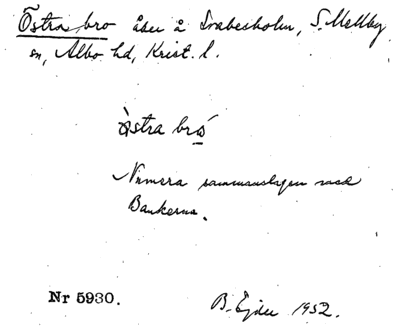 Östra bro åker å Svabesholm, S. Mellby
sn, Albo hd, Krist. l.
östra bro
Numera sammanslagen med
Bankerna.
Nr 5930. B. Ejder 1952.